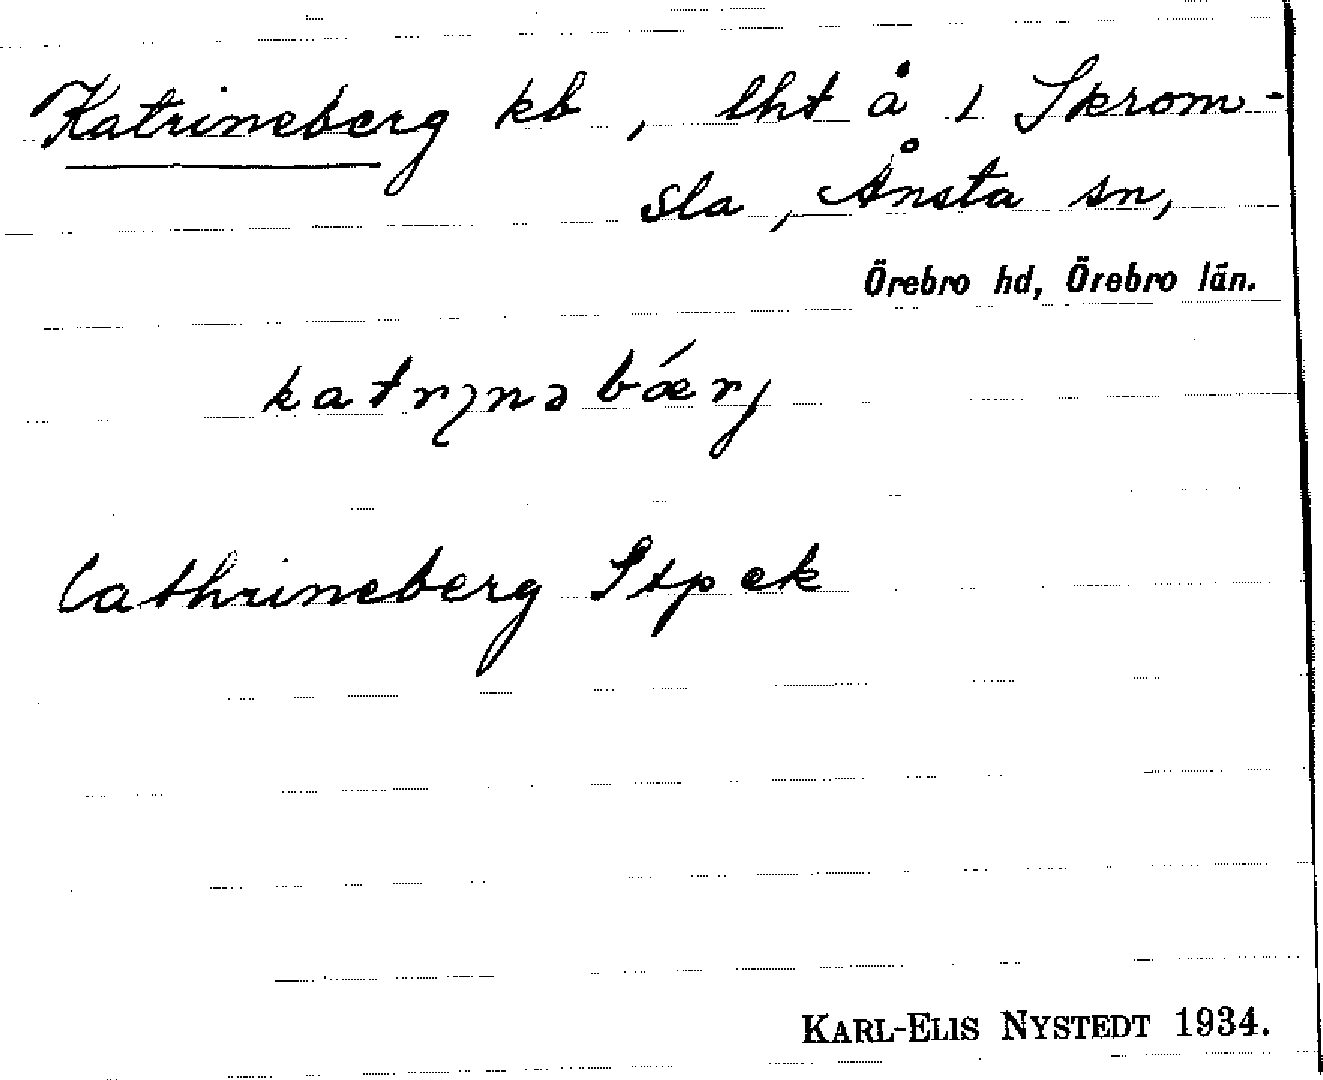 Katrineberg kb, lht å 1 Skrom-
sla, Ånsta sn,
Örebro hd, Örebro län.
Cathrineberg Stpek
KARL-ELIS NYSTEDT 1934.